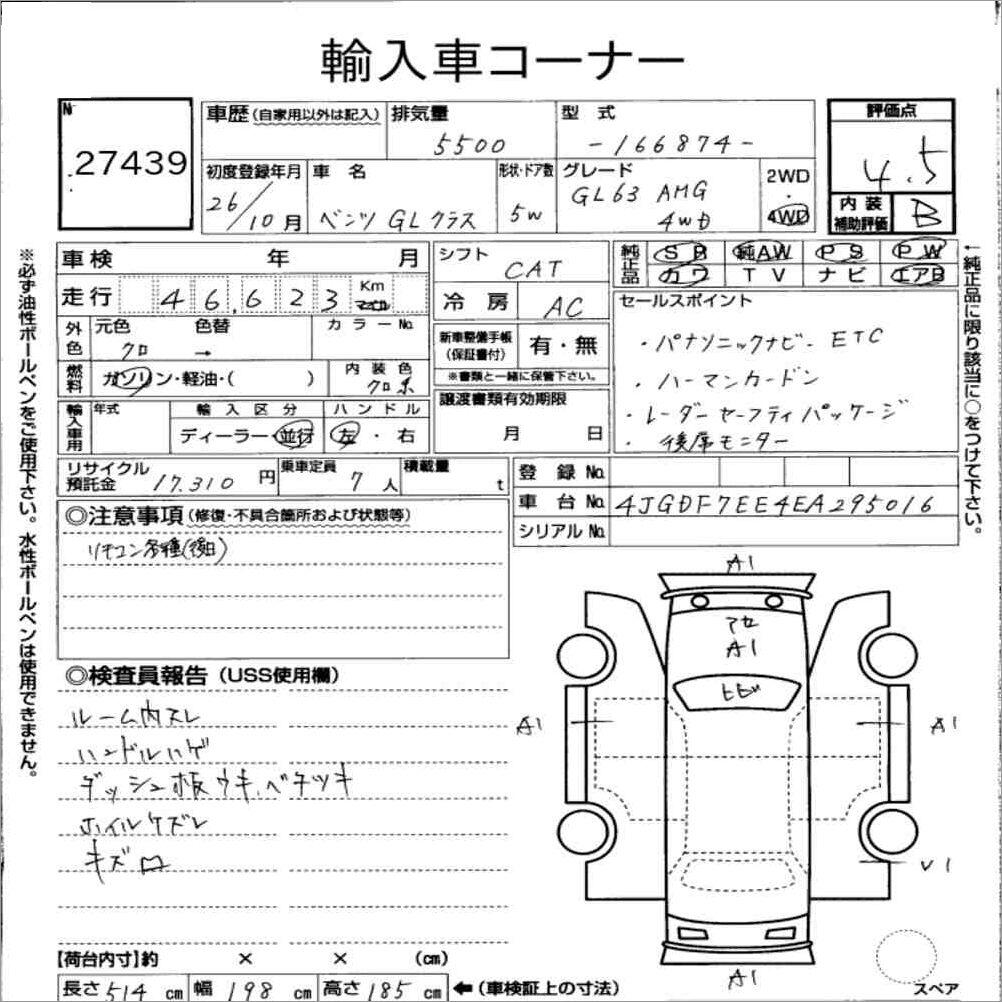 輸入車コーナー
No. 27439
車歴(自家用以外は記入) 排気量 5500 型式 -166874-
評価点 4.5
初度登録年月 26/10月 車名 ベンツ GLクラス 形状・ドア数 5W グレード GL63 AMG 4WD 2WD・4WD
内装補助評価 B
車検 年 月
シフト CAT
純正品 SR 純AW PS PW
カワ TV ナビ エアB
走行 46,623 Km マイル
冷房 AC
セールスポイント
外色 元色 クロ 色替 → カラーNo.
新車整備手帳(保証書付) 有・無
※書類と一緒に保管下さい。
・パナソニックナビ・ETC
・ハーマンカードン
・レーダーセーフティパッケージ
・後席モニター
燃料 ガソリン・軽油・( ) 内装色 クロ系
譲渡書類有効期限
月 日
輸入車用 年式 輸入区分 ハンドル
ディーラー・並行 左・右
リサイクル預託金 17,310円 乗車定員 7人 積載量 t
登録No.
車台No. 4JGDF7EE4EA295016
シリアルNo.
◎注意事項(修復・不具合箇所および状態等)
リモコン各種(後日)
◎検査員報告(USS使用欄)
ルーム内スレ
ハンドルハゲ
ダッシュ板ウキ、ベタツキ
ホイルケズレ
キズ
A1
アセ
A1
ヒビ
A1
A1
V1
A1
スペア
【荷台内寸】約 × × (cm)
長さ514cm 幅198cm 高さ185cm ←(車検証上の寸法)
※必ず油性ボールペンをご使用下さい。水性ボールペンは使用できません。
←純正品に限り該当に○をつけて下さい。